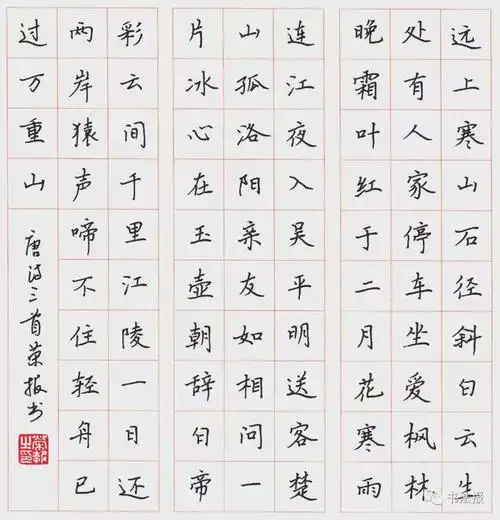 远上寒山石径斜白云生
处有人家停车坐爱枫林
晚霜叶红于二月花寒雨
连江夜入吴平明送客楚
山孤洛阳亲友如相问一
片冰心在玉壶朝辞白帝
彩云间千里江陵一日还
两岸猿声啼不住轻舟已
过万重山
唐诗三首荣报书
书法报